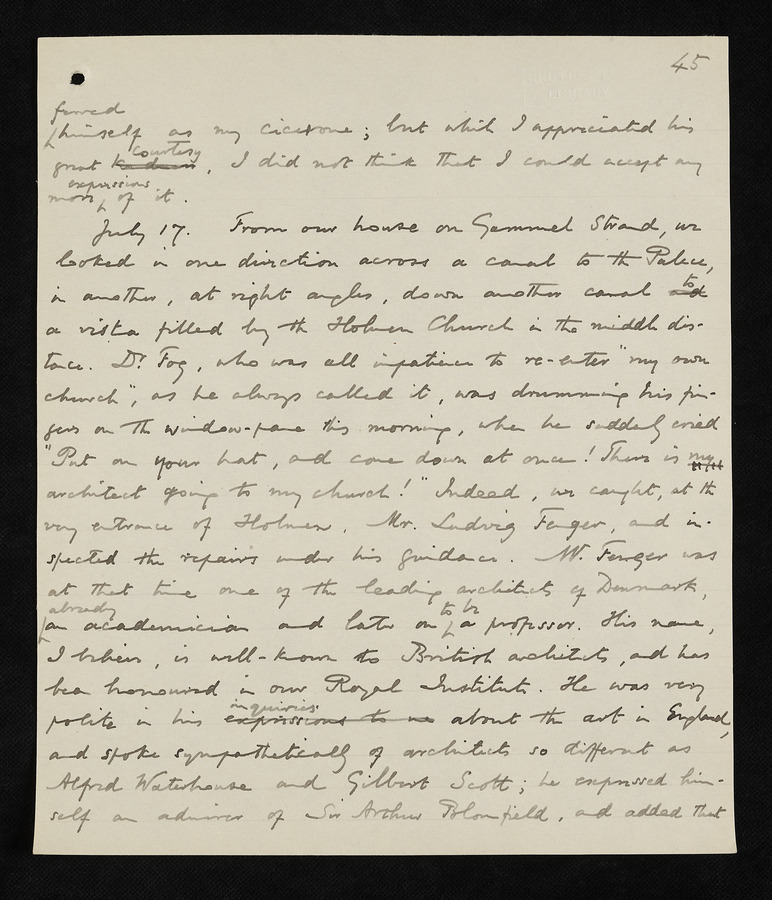 45
ferred
himself as my cicerone; but while I appreciated his
courtesy
great kindness, I did not think that I could accept any
expressions
more of it.
July 17. From our house on Gammel Strand, we
looked in one direction across a canal to the Palace,
in another, at right angles, down another canal
to
and
a vista filled by the Holmen Church in the middle dis-
tance. Dr. Fog, who was all impatience to re-enter "my own
church", as he always called it, was drumming his fin-
gers on the window-pane this morning, when he suddenly cried
"Put on your hat, and come down at once! There is my
architect going to my church!" Indeed, we caught, at the
very entrance of Holmen, Mr. Ludvig Fenger, and in-
spected the repairs under his guidance. Mr. Fenger was
at that time one of the leading architects of Denmark,
already to be
an academician and later on a professor. His name,
I believe, is well-known to British architects, and has
been honoured in our Royal Institute. He was very
inquiries
polite in his expressions to me about the art in England,
and spoke sympathetically of architects so different as
Alfred Waterhouse and Gilbert Scott; he expressed him-
self an admirer of Sir Arthur Blomfield, and added that